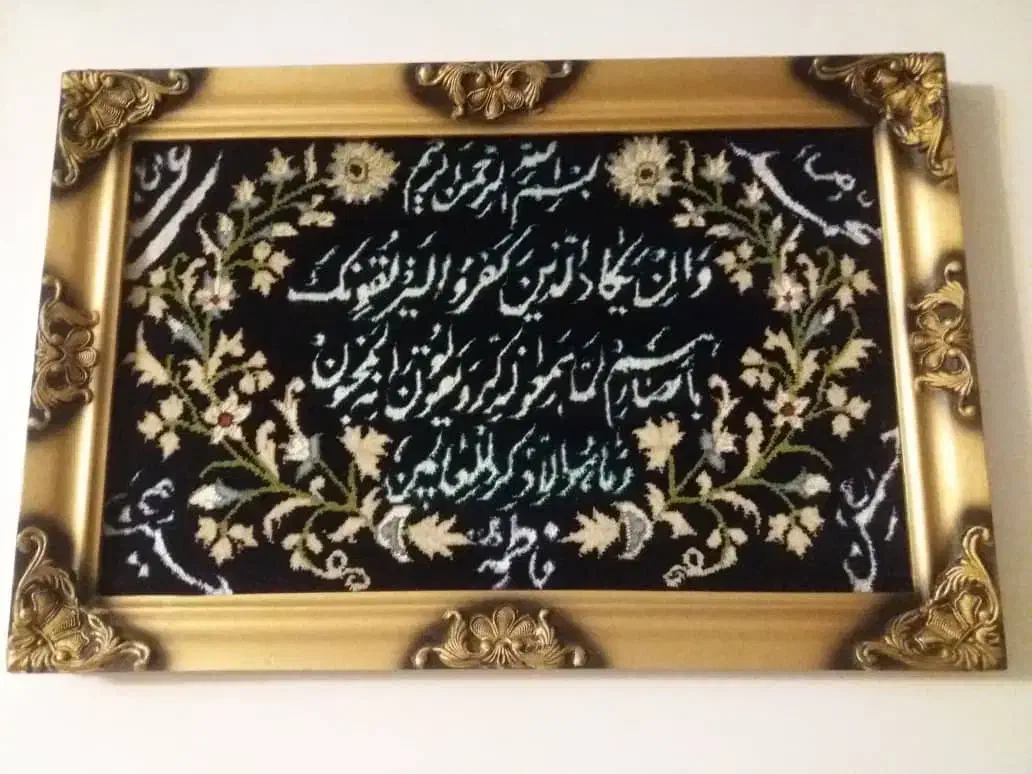 بسم الله الرحمن الرحیم
محمد
علی
وان یکاد الذین کفروا لیزلقونک
بابصارهم لما سمعوا الذکر و یقولون انه لمجنون
و ما هو الا ذکر للعالمین
حسن
فاطمه
حسین